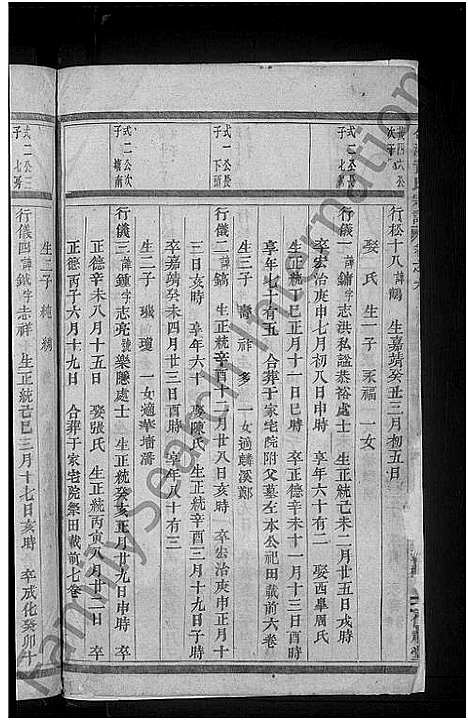 次子
行松十八諱 生嘉靖癸丑三月初五日
娶 氏 生一子 永福 一女
式二公長
子 七房
行儀一諱鏞字志洪私諡恭裕處士 生正統己未二月廿五日戌時
卒宏治庚申七月初八日申時 享年六十有二 娶西皐周氏
生正統十四己巳正月十一日巳時 卒正德辛未十一月十三日時
享年七十有五 合葬于家宅院附父墓左本公祀田載前六卷
式一公長
子 下頭
生三子 壽 祥 多 一女適麟溪鄭
行儀二諱鎬 生正統辛酉十一月廿八日亥時 卒宏治庚申正月十
三日亥時 享年六十 娶陳氏 生正統辛酉三月十九日子時
卒嘉靖癸未四月廿三日酉時 享年八十有三
式二公次
子 塘南
生二子 璣 瓊 一女適華墻潘
行儀三諱鍾字志亮號樂隱處士 生正統癸亥正月廿九日申時 卒
正德辛未八月十五日 娶張氏 生正統丙寅八月廿二日 卒
正德丙子六月十九日 合葬于家宅院祭田載前七卷
式二公三
子
生二子 純 綉
行儀四諱鉞字志祥 生正統己巳三月十七日亥時 卒成化癸卯十
FamilySearch International